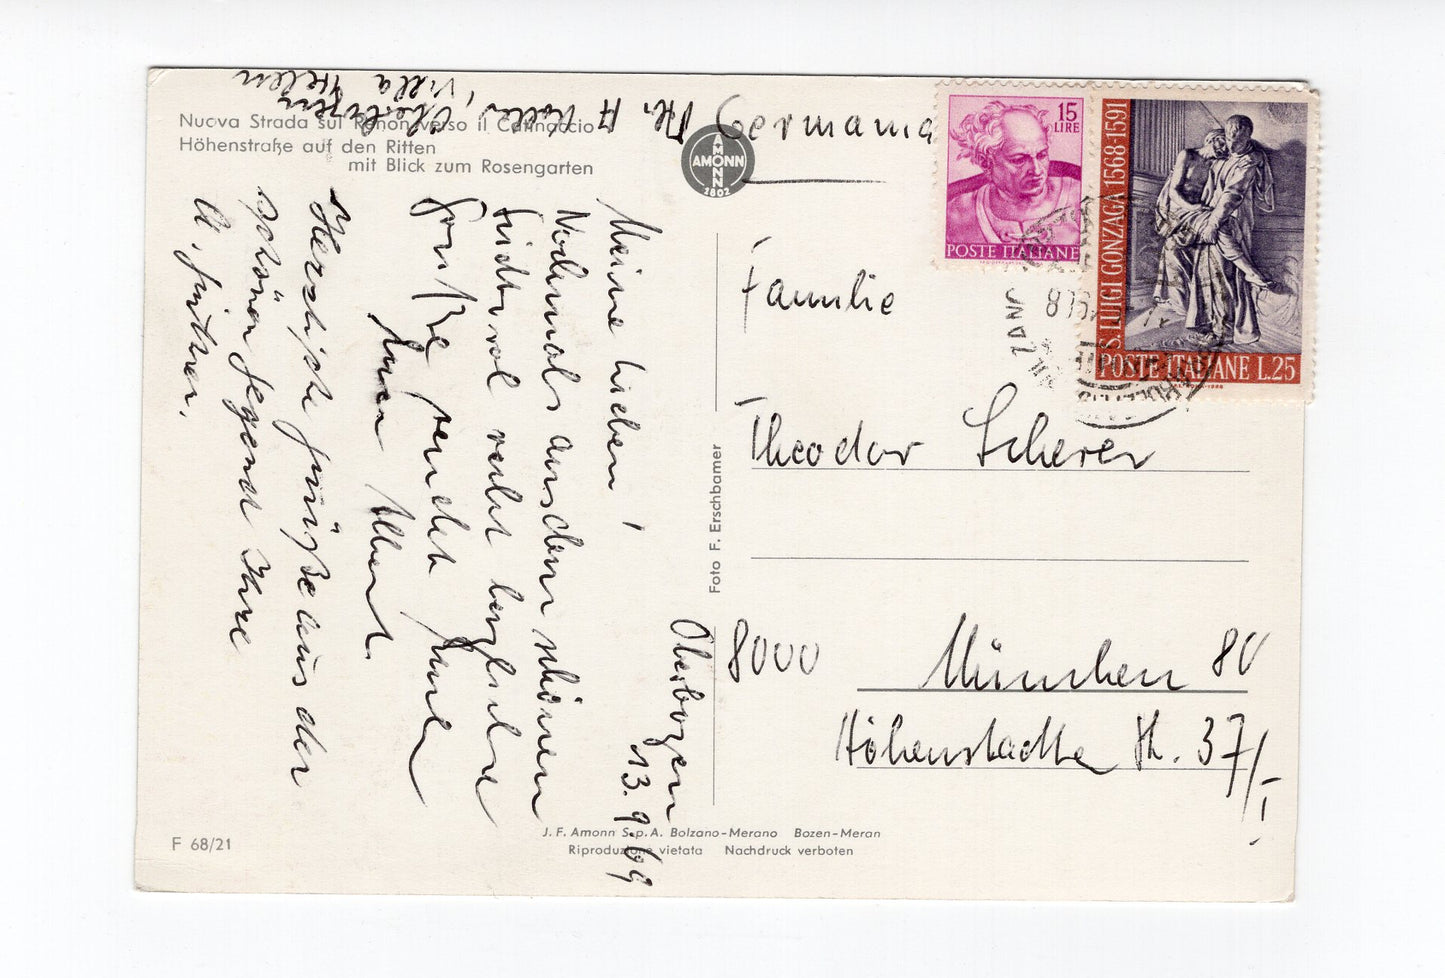 Nuova Strada sul Renon verso il Catinaccio
Höhenstraße auf den Ritten
mit Blick zum Rosengarten
AMONN
AMONN
1802
15
LIRE
POSTE ITALIANE
S. LUIGI GONZAGA 1568-1591
POSTE ITALIANE L.25
Familie
Theodor Scherer
8000 München 80
Höhenstadter Str. 37/I
Oberbozen
13.9.69
Meine Lieben!
Nochmals aus dem schönen
Südtirol recht herzliche
Grüße sendet Euch
Euer Albert.
Herzliche Grüße aus der
schönen Gegend Ihre
A.
Oberbozen
Villa Helen
Foto F. Erschbamer
J. F. Amonn S.p.A. Bolzano-Merano Bozen-Meran
Riproduzione vietata Nachdruck verboten
F 68/21